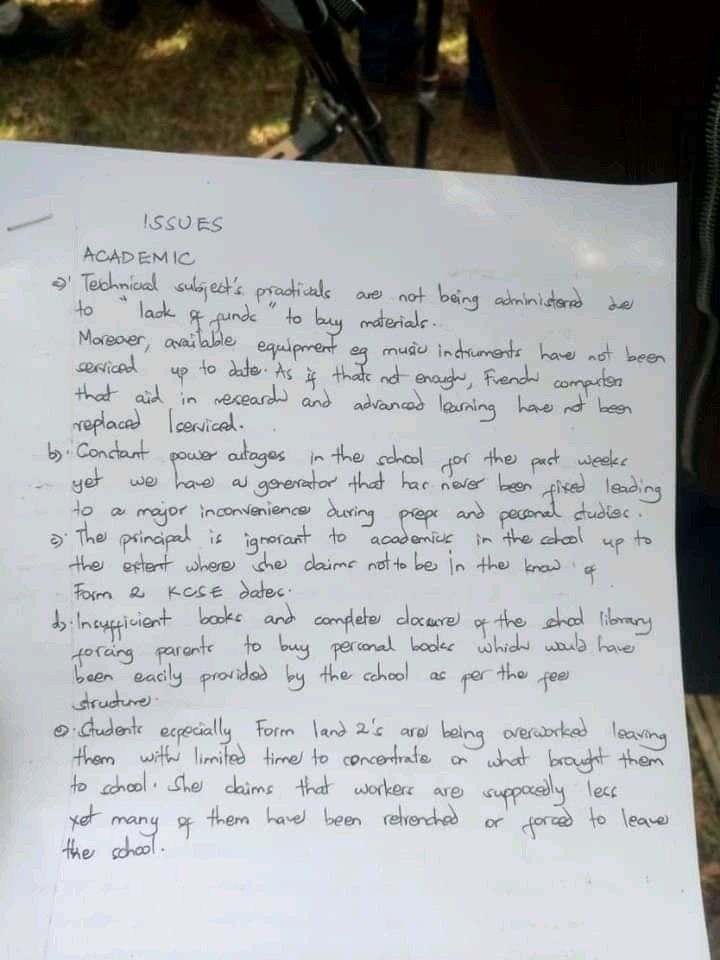 ISSUES
ACADEMIC
a) Technical subject's practicals are not being administered due
to "lack of funds" to buy materials..
Moreover, available equipment eg music instruments have not been
serviced up to date. As if thats not enough, French computers
that aid in research and advanced learning have not been
replaced / serviced.
b). Constant power outages in the school for the past weeks
yet we have a generator that has never been fixed leading
to a major inconvenience during preps and personal studies.
c) The principal is ignorant to academics in the school up to
the extent where she claims not to be in the know of
Form 2 KCSE dates.
d). Insufficient books and complete closure of the school library
forcing parents to buy personal books which would have
been easily provided by the school as per the fee
structure.
e). Students especially Form 1 and 2's are being overworked leaving
them with limited time to concentrate on what brought them
to school. She claims that workers are supposedly less
yet many of them have been retrenched or forced to leave
the school.